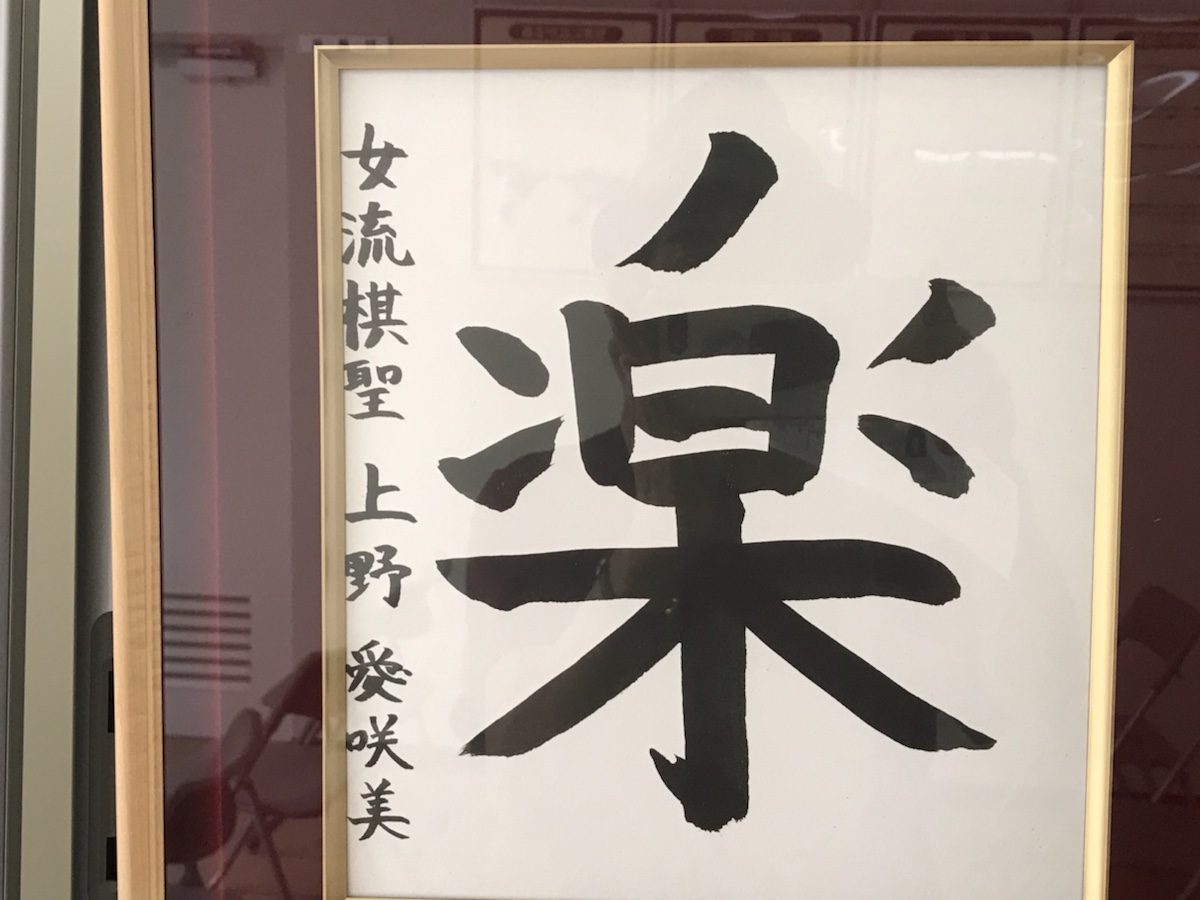 楽
女流棋聖 上野 愛咲美